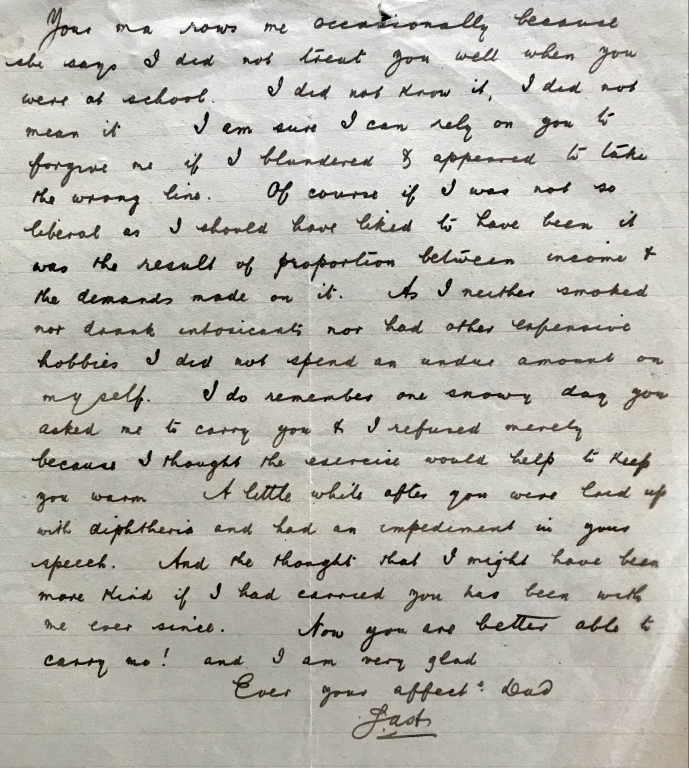 Your ma rows me occasionally because
she says I did not treat you well when you
were at school. I did not know it, I did not
mean it I am sure I can rely on you to
forgive me if I blundered & appeared to take
the wrong line. Of course if I was not so
liberal as I should have liked to have been it
was the result of proportion between income &
the demands made on it. As I neither smoked
nor drank intoxicants nor had other expensive
hobbies I did not spend an undue amount on
myself. I do remember one snowy day you
asked me to carry you & I refused merely
because I thought the exercise would help to keep
you warm A little while after you were laid up
with diphtheria and had an impediment in your
speech. And the thought that I might have been
more kind if I had carried you has been with
me ever since. Now you are better able to
carry me! and I am very glad
Ever your affect. Dad